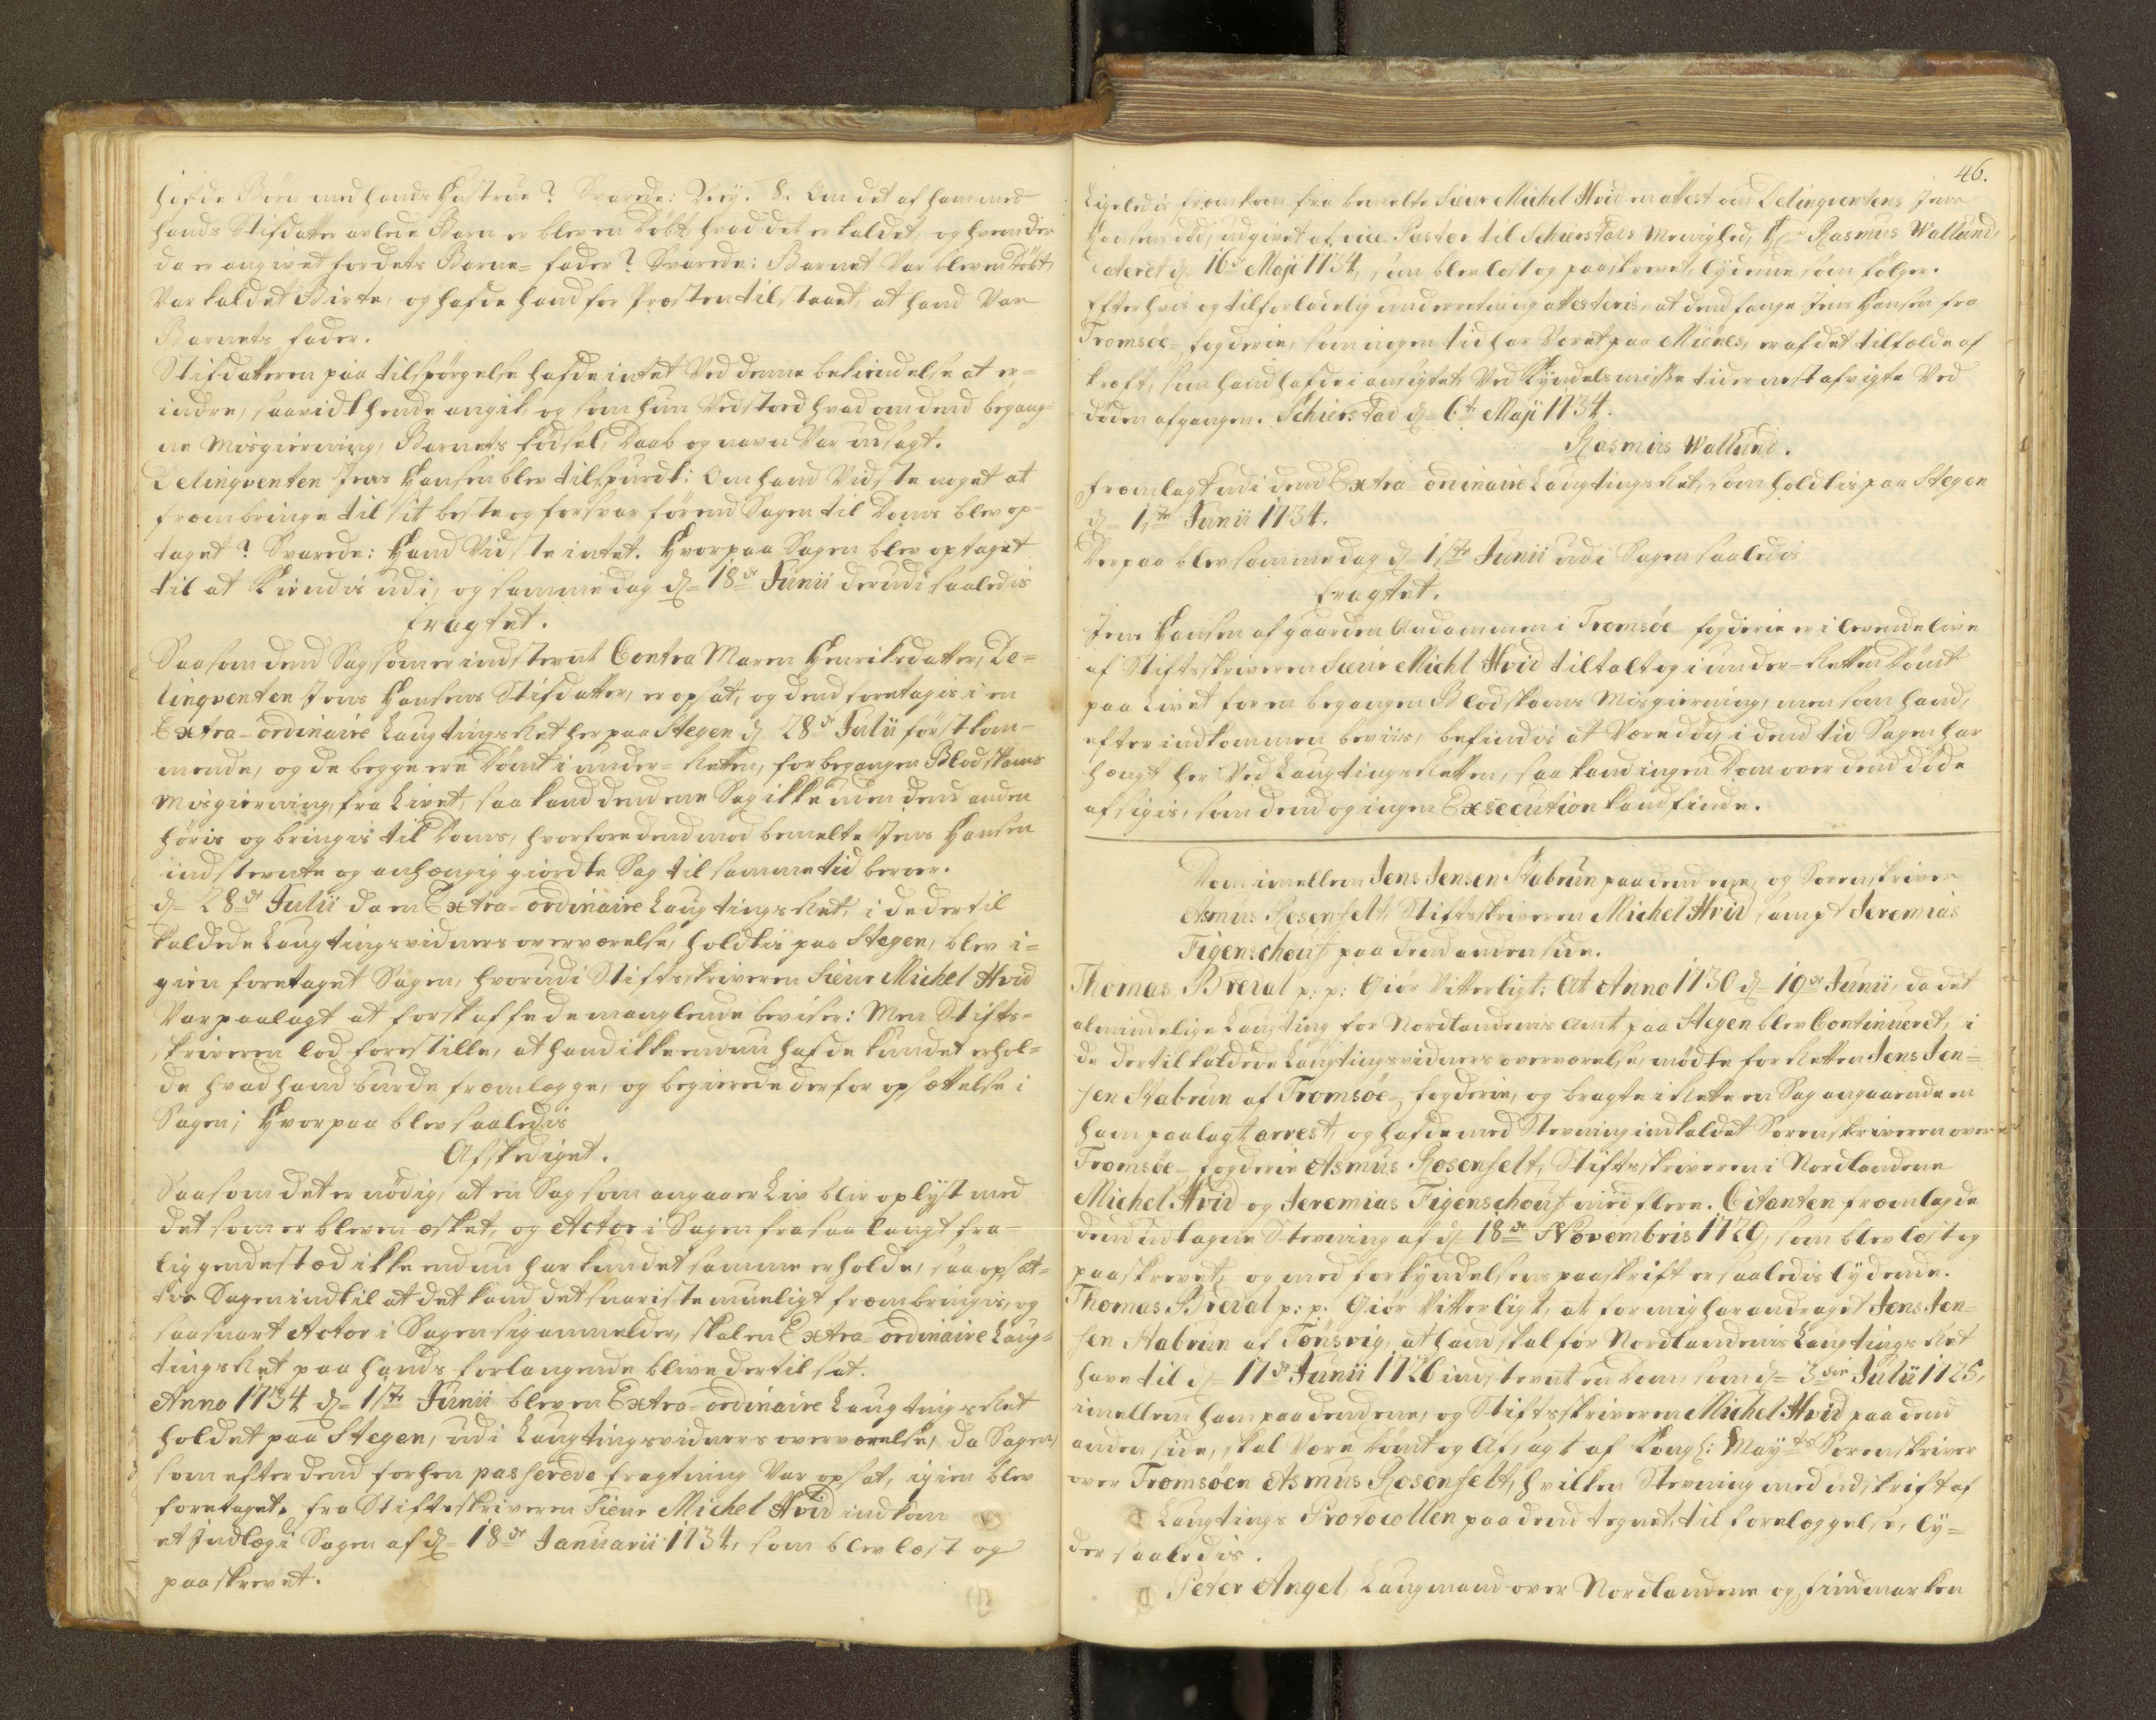 hafde Børn med hands Hustrue? Svarede: Neÿ. 8. Om det af ham med
hands Stifdatter avlede Barn er bleven Døbt, hvad det er kaldet, og hvem der
da er angivet for dets Barne-fader? Svarede: Barnet Var bleven Døbt,
Var kaldet Birte, og hafde hand for Præsten tilstaaet, at hand Var
Barnets fader.
Stifdatteren paa tilspørgelse hafde intet Ved denne bekiendelse at er=
indre, saavidt hende angik, og som hun Vedstoed hvad om dend begaag=
ne Misgierning, Barnets fødsel, Daab og navn Var udsagt.
Delinqventen Jens Hansen blev tilspurdt: Om hand Vidste noget at
frembringe til sit beste og forsvar førend Sagen til Doms blev op=
taget? Svarede: Hand Vidste intet. Hvorpaa Sagen blev optaget
til at Kiendis udi, og samme dag d= 18de Junii derudi saaledis
fragtet.
Saasom dend Sag som er indstevnt Contra Maren Henriksdatter, De=
linqventen Jens Hansens Stifdatter, er opsat, og dend foretagis i en
Extra-ordinaire Laugtings Ret her paa Stegen d. 28de Julii førstkom=
mende, og de begge ere Dømt i under-Retten, for begangen Blodskams
Misgierning, fra Livet, saa kand dend ene Sag ikke uden dend anden
høris og bringis til Doms, hvorfore dend mod bemelte Jens Hansen
indstevnte og anhængig giordte Sag til samme tid beroer.
d= 28de Julii da en Extra-ordinaire Laugtings Ret, i de dertil
kaldede Laugtingsvidners overværelse, holdtis paa Stegen, blev i=
gien foretaget Sagen, hvorudi Stiftsskriveren Sieur Michel Hvid
Var paalagt at forskaffe de manglende beviser: Men Stifts=
skriveren lod forestille, at hand ikke endnu hafde kundet erhol=
de hvad hand burde fremlægge, og begierede derfor opsættelse i
Sagen; Hvorpaa blev saaledis
Afskediget.
Saasom det er nødig, at en Sag som angaaer Liv blir oplyst med
det som er bleven æsket, og Actor i Sagen fra saa langt fra=
liggende stæd ikke endnu har kundet samme erholde, saa opsæt=
tes Sagen indtil at det kand det snariste mueligt frembringis, og
saasnart Actor i Sagen sig anmelder, skal en Extra-ordinaire Laug=
tings Ret paa hands forlangende blive dertil sat.
Anno 1734 d= 1ste Junii blev en Extra-ordinaire Laugtings Ret
holdet paa Stegen, udi Laugtingsvidners overværelse, da Sagen,
som efter dend forhen passerede fragtning Var opsat, igien blev
foretaget. fra Stiftsskriveren Sieur Michel Hvid indkom
et Indlæg i Sagen af d= 18de Januarii 1734, som blev læst og
paaskrevet.
46.
Ligeledis fremkom fra bemelte Sieur Michel Hvid en attest om Delinqventens Jens
Hansens død, udgivet af vice Pastor til Schierstads Menighed, Hr Rasmus Wallund,
dateret d. 16de Maji 1734, som blev læst og paaskrevet, lydende som følger.
Efter hvis og tilforladelig underretning attesteris, at dend fange Jens Hansen fra
Tromsøe-fogderie, som ingen tid har Været paa Miønes, er af det tilfælde af
kræft, som hand hafde i ansigtet, Ved Kyndelsmisse tider nest afvigte Ved
døden afgangen. Schierstad d= 6te Maji 1734.
Rasmus Wallund.
fremlagt udi dend Extra-ordinaire Laugtings Ret, som holdtis paa Stegen
d= 1ste Junii 1734.
Derpaa blev samme dag d= 1ste Junii udi Sagen saaledis
fragtet.
Jens Hansen af gaarden Andammen i Tromsøe fogderie er i levende live
af Stiftsskriveren Sieur Michl Hvid tiltalt og i under-Retten Dømt
paa Livet for en begangen Blodskams Misgierning, men som hand,
efter indkommen beviis, befindis at Være død, i dend tid Sagen har
hængt her Ved Laugtings Retten, saa kand ingen Dom over dend døde
afsigis, som dend og ingen Exsecution kand finde.
Dom imellem Jens Jensen Stabrun paa dend ene, og Sorenskriver
Asmus Rosenfelt, Stiftsskriveren Michel Hvid, sampt Jeremias
Figenschouf paa dend anden side.
Thomas Breval p: p: Giør Vitterligt: At Anno 1730 d= 19de Junii, da det
almindelige Laugting for Nordlandenes Amt paa Stegen blev Continueret, i
de dertil kaldede Laugtingsvidners overværelse, mødte for Retten Jens Jen=
sen Stabrun af Tromsøe-fogderie, og bragte i Rette en Sag angaaende en
ham paalagt arrest, og hafde med Stevning indkaldet Sorenskriveren over
Tromsøe-fogderie Asmus Rosenfelt, Stiftsskriveren i Nordlandene
Michel Hvid og Jeremias Figenschouf med flere. Citanten fremlagde
dend udtagne Stevning af d= 18de Novembris 1729, som blev læst og
paaskrevet, og med forkyndelsens paaskrift er saaledis lydende.
Thomas Breval p: p. Giør Vitterligt, at for mig har andraget Jens Jen=
sen Stabrun af Tønsvig, at hand skal for Nordlandenes Laugtings Ret
have til d= 17de Junii 1726 indstevnt en Dom, som d= 3die Julii 1725,
imellem ham paa dend ene, og Stiftsskriveren Michel Hvid paa dend
anden side, skal Være Dømt og Afsagt af Kongl: Mayts Sorenskriver
over Tromsøen Asmus Rosenfelt, hvilken Stevning med udskrift af
Laugtings Protocollen paa dend tegnet, til forelæggelse, ly=
der saaledis.
Peter Angel, Laugmand over Nordlandene og findmarken